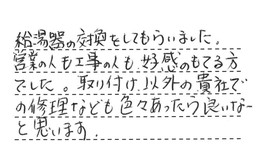 給湯器の交換をしてもらいました。
営業の人も工事の人も好感のもてる方
でした。取り付け以外の貴社で
の修理なども色々あったら良いなー
と思います.